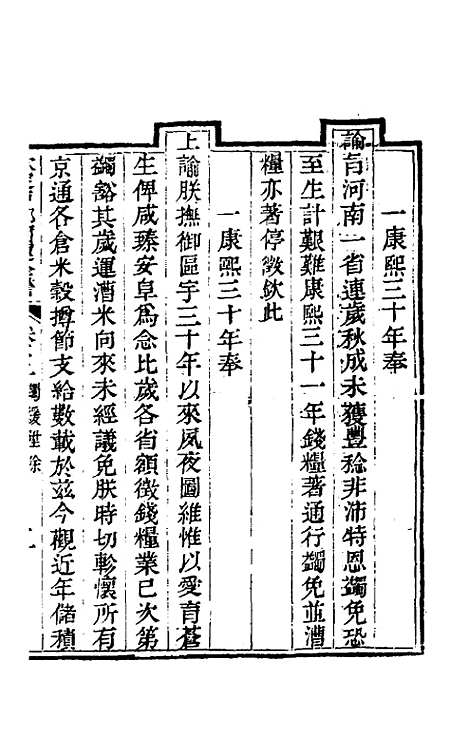 一康熙三十年奉
諭旨河南一省連歲秋成未獲豐稔非沛特恩蠲免恐
至生計艱難康熙三十一年錢糧著通行蠲免並漕
糧亦著停徵欽此
一康熙三十年奉
上諭朕撫御區宇三十年以來夙夜圖維惟以愛育蒼
生俾咸臻安阜爲念比歲各省額徵錢糧業已次第
蠲豁其歲運漕米向來未經議免朕時切軫懷所有
京通各倉米穀撙節支給數載於茲今觀近年儲積